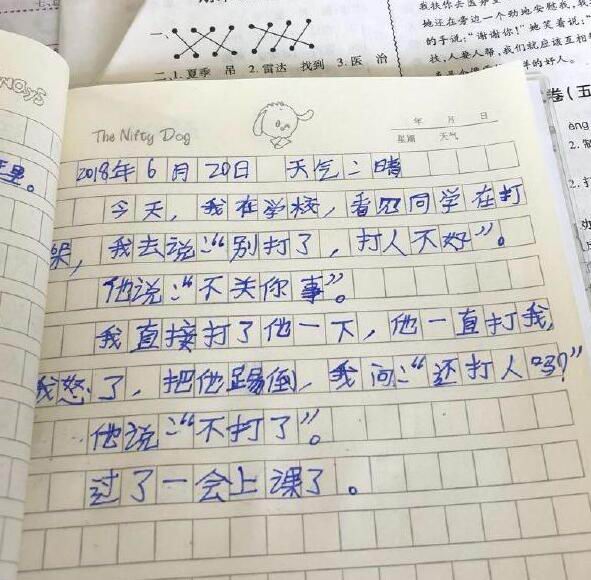 一、
二、1.夏季 吊 2.雷达 找到 3.医 治
我扶你去医务室
地还在旁边一个劲地安慰我,我
的手说:"谢谢你!"她笑着说:"
技,人要人帮,我们就应该互相
样的好人。
卷(五
eng
2.
2.扌
NOSYS
里。
The Nifty Dog
年 月 日
星期 天气
2018年6月20日 天气:晴
今天,我在学校,看见同学在打
架,我去说:"别打了,打人不好"。
他说:"不关你事"。
我直接打了他一下,他一直打我,
我怒了,把他踢倒,我问:"还打人吗?"
他说:"不打了"。
过了一会上课了。